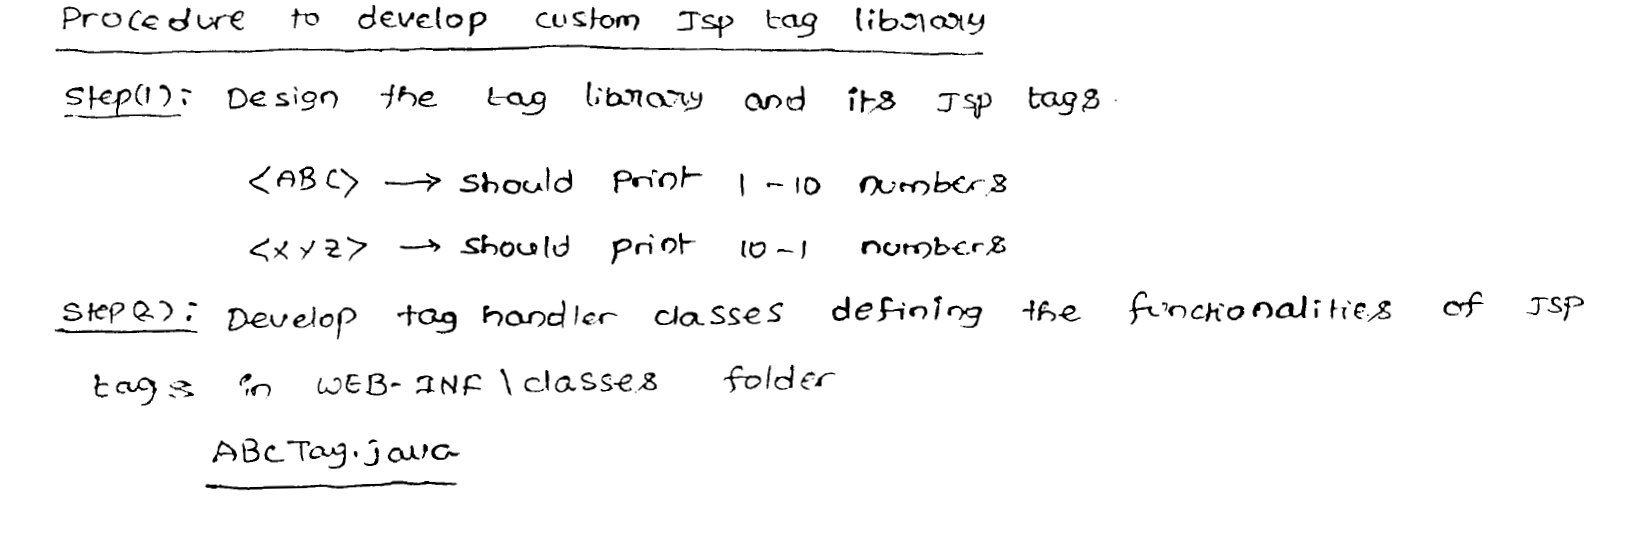 Procedure to develop custom Jsp tag library
Step(1): Design the tag library and its Jsp tags.
<ABC> → should print 1-10 numbers
<XYZ> → should print 10-1 numbers
Step(2): Develop tag handler classes defining the functionalities of JSP
tags in WEB-INF \ classes folder
ABCTag.java